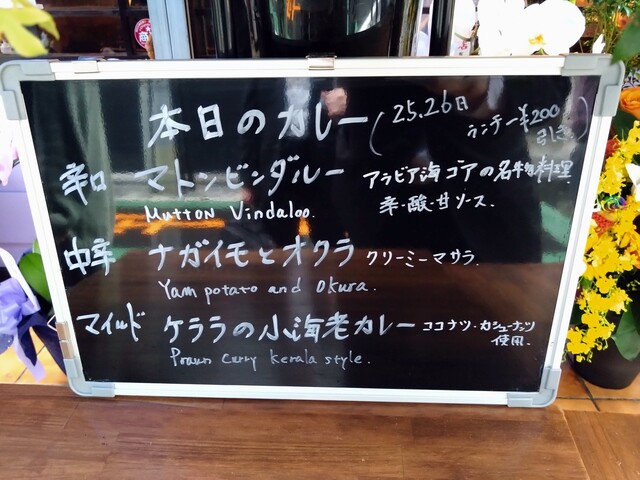 本日のカレー (25.26日
ランチー¥200
引き)
辛口 マトンビンダルー アラビア海 ゴアの名物料理
Mutton Vindaloo. 辛・酸・甘ソース.
中辛 ナガイモとオクラ クリーミーマサラ.
Yam potato and Okura.
マイルド ケララの小海老カレー ココナツ・カシューナッツ
使用.
Prawn Curry Kerala style.